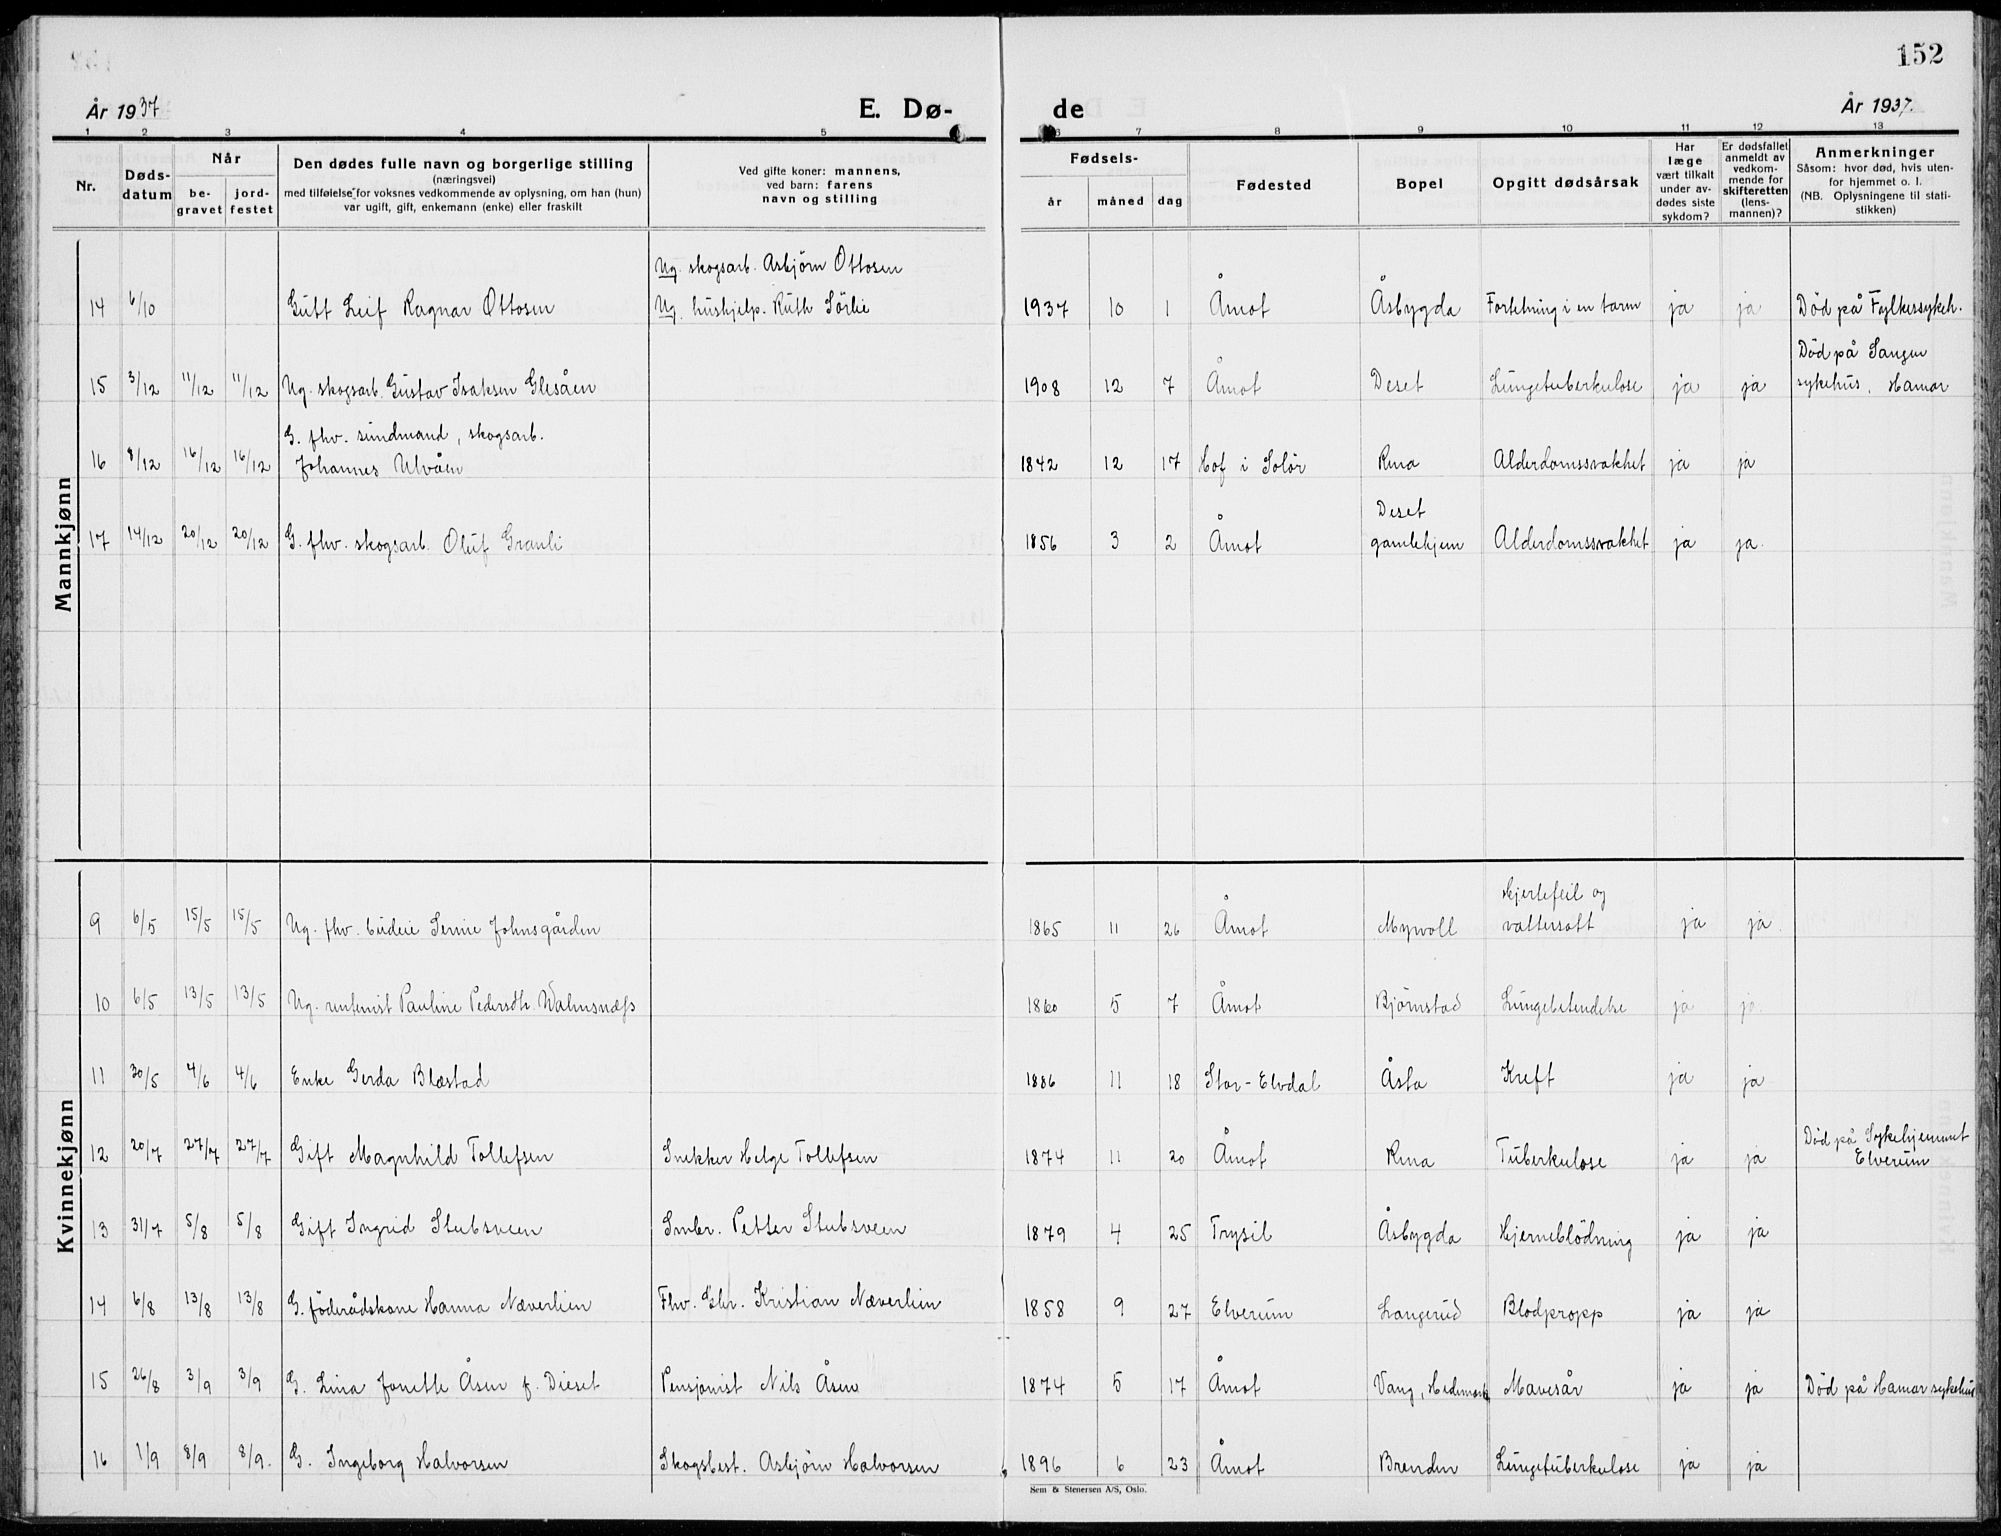 152
År 1937
E. Dø-
de
År 1937.
1 2 3 4 5 6 7 8 9 10 11 12 13
Nr.
Døds-
datum
Når
be-
gravet
jord-
festet
Den dødes fulle navn og borgerlige stilling
(næringsvei)
med tilføielse for voksnes vedkommende av oplysning, om han (hun)
var ugift, gift, enkemann (enke) eller fraskilt
Ved gifte koner: mannens,
ved barn: farens
navn og stilling
Fødsels-
år måned dag
Fødested
Bopel
Opgitt dødsårsak
Har
læge
vært tilkalt
under av-
dødes siste
sykdom?
Er dødsfallet
anmeldt av
vedkom-
mende for
skifteretten
(lens-
mannen)?
Anmerkninger
Såsom: hvor død, hvis uten-
for hjemmet o. l.
(NB. Oplysningene til stati-
stikken)
Mannkjønn
Ug. skogsarb. Asbjørn Ottosen
14 6/10 Gutt Leif Ragnar Ottosen Ug. hushjelp. Ruth Sörlie 1937 10 1 Åmot Åsbygda Fortetning i en tarm ja ja Död på Fylkessykeh.
Död på Sangen
15 3/12 11/12 11/12 Ug. skogsarb. Gustav Isaksen Glesåen 1908 12 7 Åmot Deset Lungetuberkulose ja ja sykehus, Hamar
G. fhv. sundmand, skogsarb.
16 8/12 16/12 16/12 Johannes Ulvåen 1842 12 17 Hof i Solör Rena Alderdomssvakhet ja ja
Deset
17 14/12 20/12 20/12 G. fhv. skogsarb. Oluf Granli 1856 3 2 Åmot gamlehjem Alderdomssvakhet ja ja.
Kvinnekjønn
Hjertefeil og
9 6/5 15/5 15/5 Ug. fhv. budeie Sernie Johnsgården 1865 11 26 Åmot Myrvoll vattersott ja ja.
10 6/5 13/5 13/5 Ug. rentenist Pauline Pedersdtr. Walmsnæss 1860 5 7 Åmot Bjørnstad Lungebetendelse ja ja.
11 30/5 4/6 4/6 Enke Gerda Blæstad 1886 11 18 Stor-Elvdal Åsta Kreft ja ja
Död på Sykehjemmet
12 20/7 27/7 27/7 Gift Magnhild Tollefsen Snekker Helge Tollefsen 1874 11 20 Åmot Rena Tuberkulose ja ja Elverum
13 31/7 5/8 5/8 Gift Ingrid Stubsveen Smbr. Petter Stubsveen 1879 4 25 Trysil Åsbygda Hjerneblödning ja ja
14 6/8 13/8 13/8 G. föderådskone Hanna Næverlien Fhv. Gbr. Kristian Næverlien 1858 9 27 Elverum Langerud Blodpropp ja ja
15 26/8 3/9 3/9 G. Lina Jonette Åsen f. Dieset Pensjonist Nils Åsen 1874 5 17 Åmot Vang, Hedemark Mavesår ja ja Död på Hamar sykehus
16 1/9 8/9 8/9. G. Ingeborg Halvorsen Skogsbest. Asbjörn Halvorsen 1896 6 23 Åmot Brenden Lungetuberkulose ja ja
Sem & Stenersen A/S, Oslo.